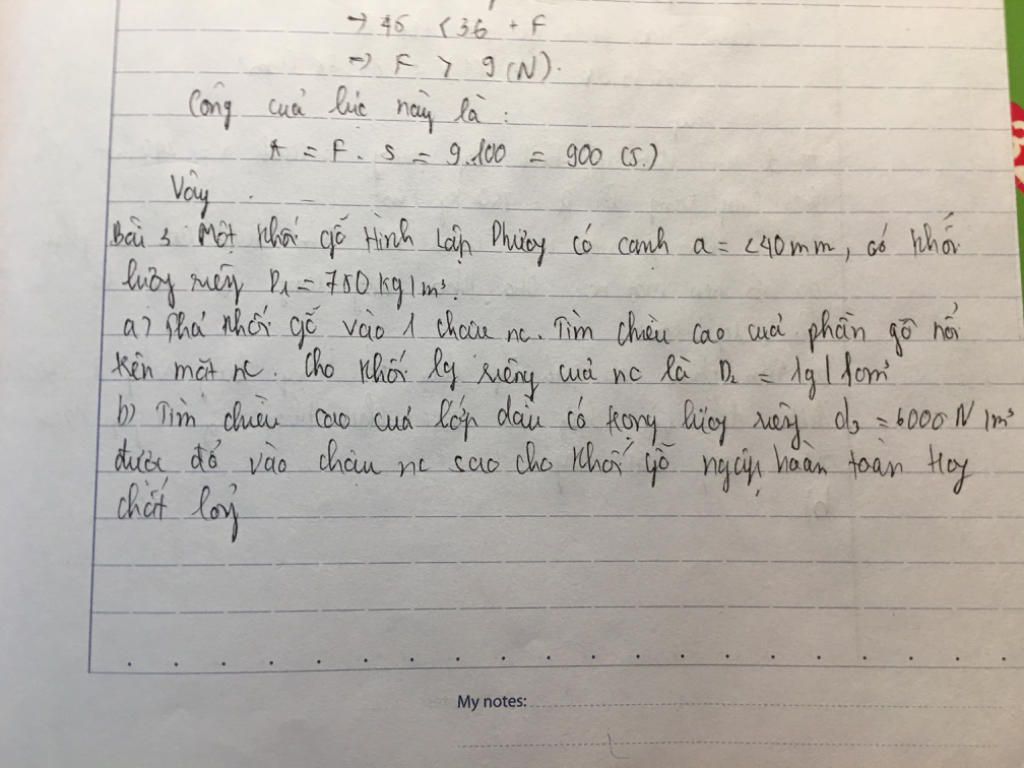 → 45 < 36 + F
→ F > 9 (N).
Công cuả lực này là :
A = F. S = 9.100 = 900 (S.)
Vậy .
Bài 3 Một khối gỗ Hình Lập Phương có cạnh a = 240mm, có khối
lượng riêng D₁ = 750kg/m³.
a) Thả khối gỗ vào 1 chậu nc. Tìm chiều cao cuả phần gỗ nổi
trên mặt nc. Cho khối lg riêng cuả nc là D₂ = 1g/1cm³
b) Tìm chiều cao cuả lớp dầu có trọng lượng riêng d₃ = 6000 N/m³
được đổ vào chậu nc sao cho khối gỗ ngập hoàn toàn trog
chất lỏng
My notes: